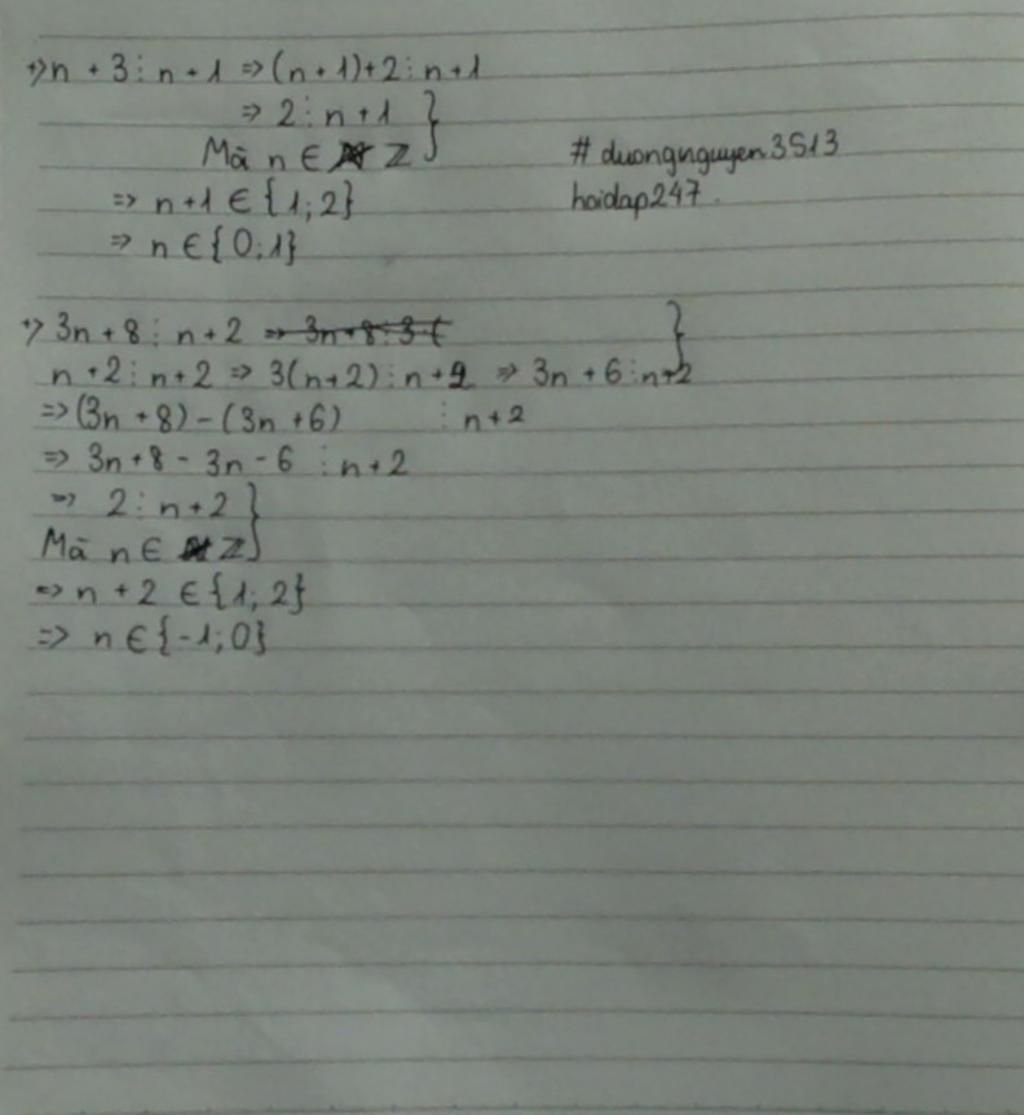 +) n + 3 ⋮ n + 1 => (n + 1) + 2 ⋮ n + 1
=> 2 ⋮ n + 1 }
Mà n ∈ Z
# duongnguyen3513
=> n + 1 ∈ {1; 2}
hoidap247.
=> n ∈ {0; 1}
+) 3n + 8 ⋮ n + 2 => 3n + 8 ⋮ 3 ( }
n + 2 ⋮ n + 2 => 3(n + 2) ⋮ n + 2 => 3n + 6 ⋮ n + 2
=> (3n + 8) - (3n + 6) ⋮ n + 2
=> 3n + 8 - 3n - 6 ⋮ n + 2
=> 2 ⋮ n + 2 }
Mà n ∈ Z
=> n + 2 ∈ {1; 2}
=> n ∈ {-1; 0}